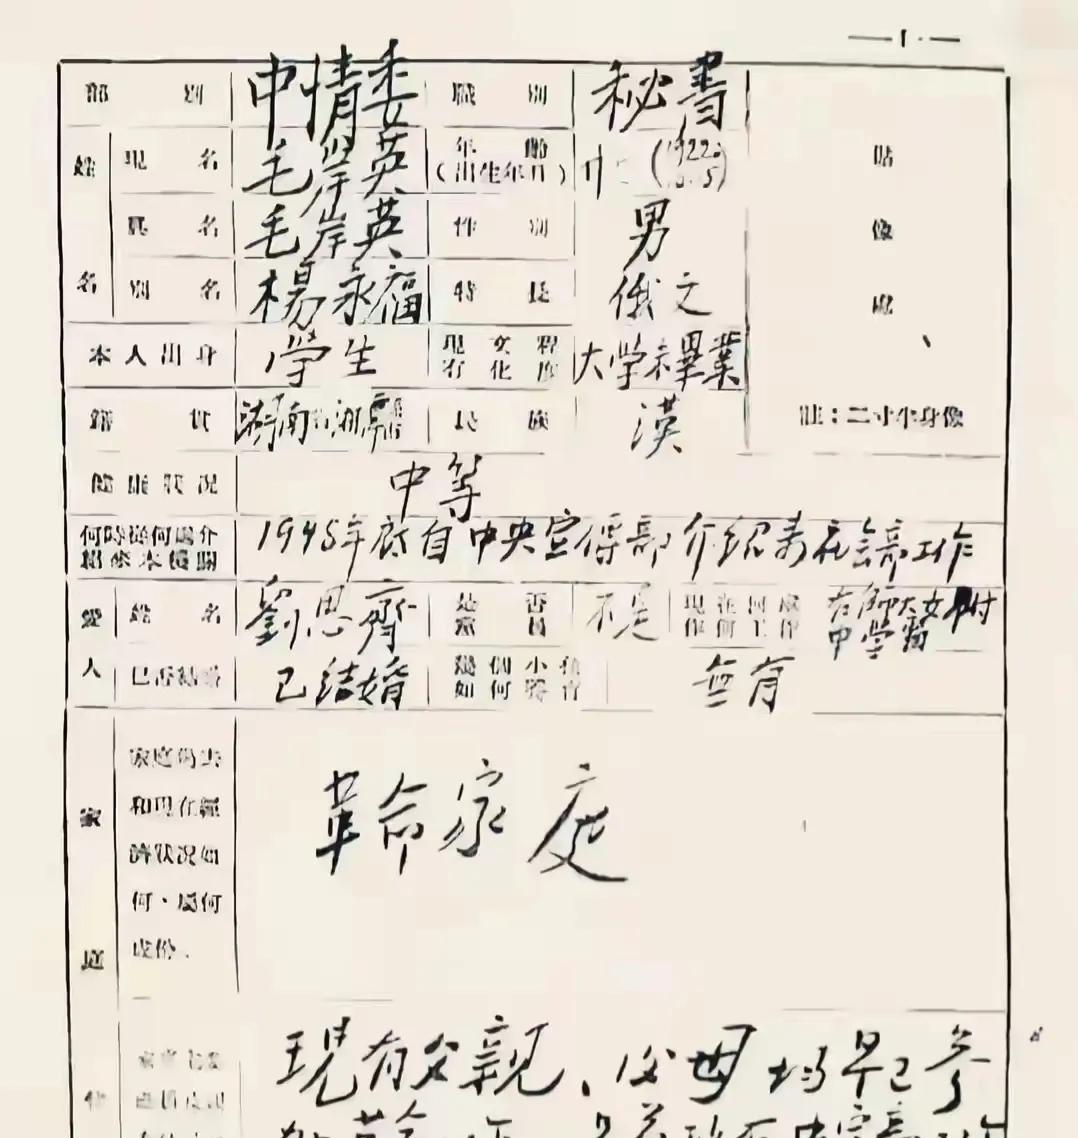 — 1 · —
部別 中情委 職別 秘書
姓名 現名 毛岸英 年齡(出生年月) 廿 (1922.
真名 毛岸英 性別 男
別名 楊永福 特長 俄文
本人出身 學生 現有文化程度 大学未畢業
籍貫 湖南 湘潭 民族 漢
健康狀况 中等
何時從何處介紹來本機關 1948年底自中央宣傳部介紹来社会部工作
愛人 姓名 劉思齊 是否黨員 不是 現在何處作何工作 在師大女附中學習
已否結婚 已结婚 幾個小孩如何養育 無有
貼像處
註:二寸半身像
家庭 家庭過去和現在經濟狀况如何、屬何成份.
革命家庭
現有父親、父母均早已参